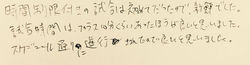 時間制限付きの試合は初めてだったので、新鮮でした。
試合時間は、プラス10分くらいあったほうが良いと思いました。
スケジュール通りに進行 されたので良いと思いました。